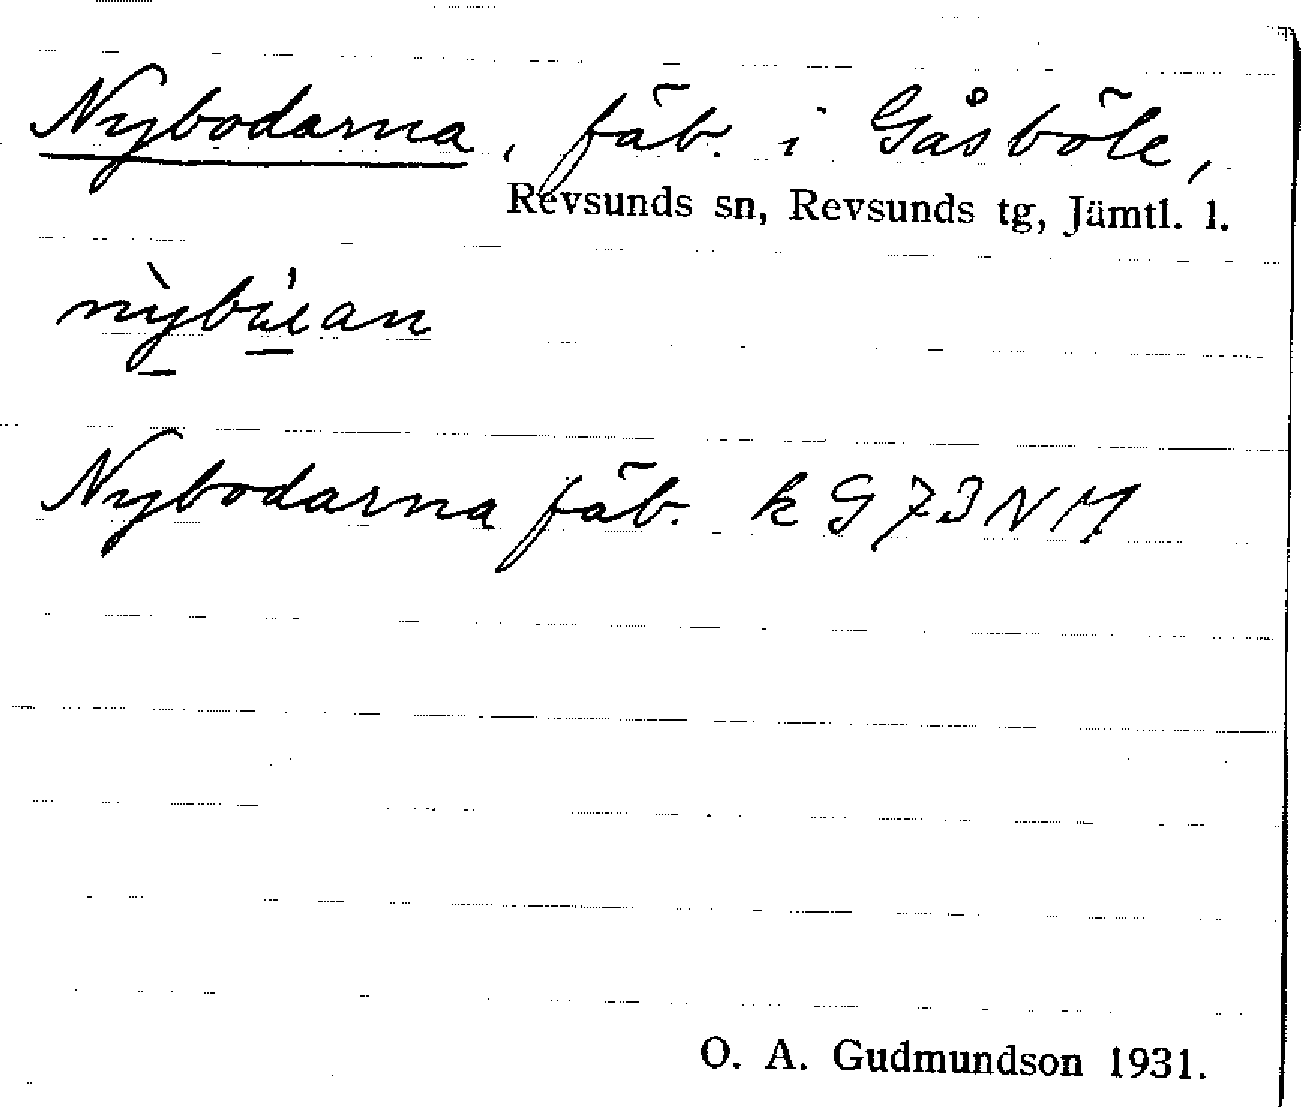 Nybodarna, fäb. i Gåsböle,
Revsunds sn, Revsunds tg, Jämtl. l.
Nybodarna fäb. k G 73 N M
O. A. Gudmundson 1931.